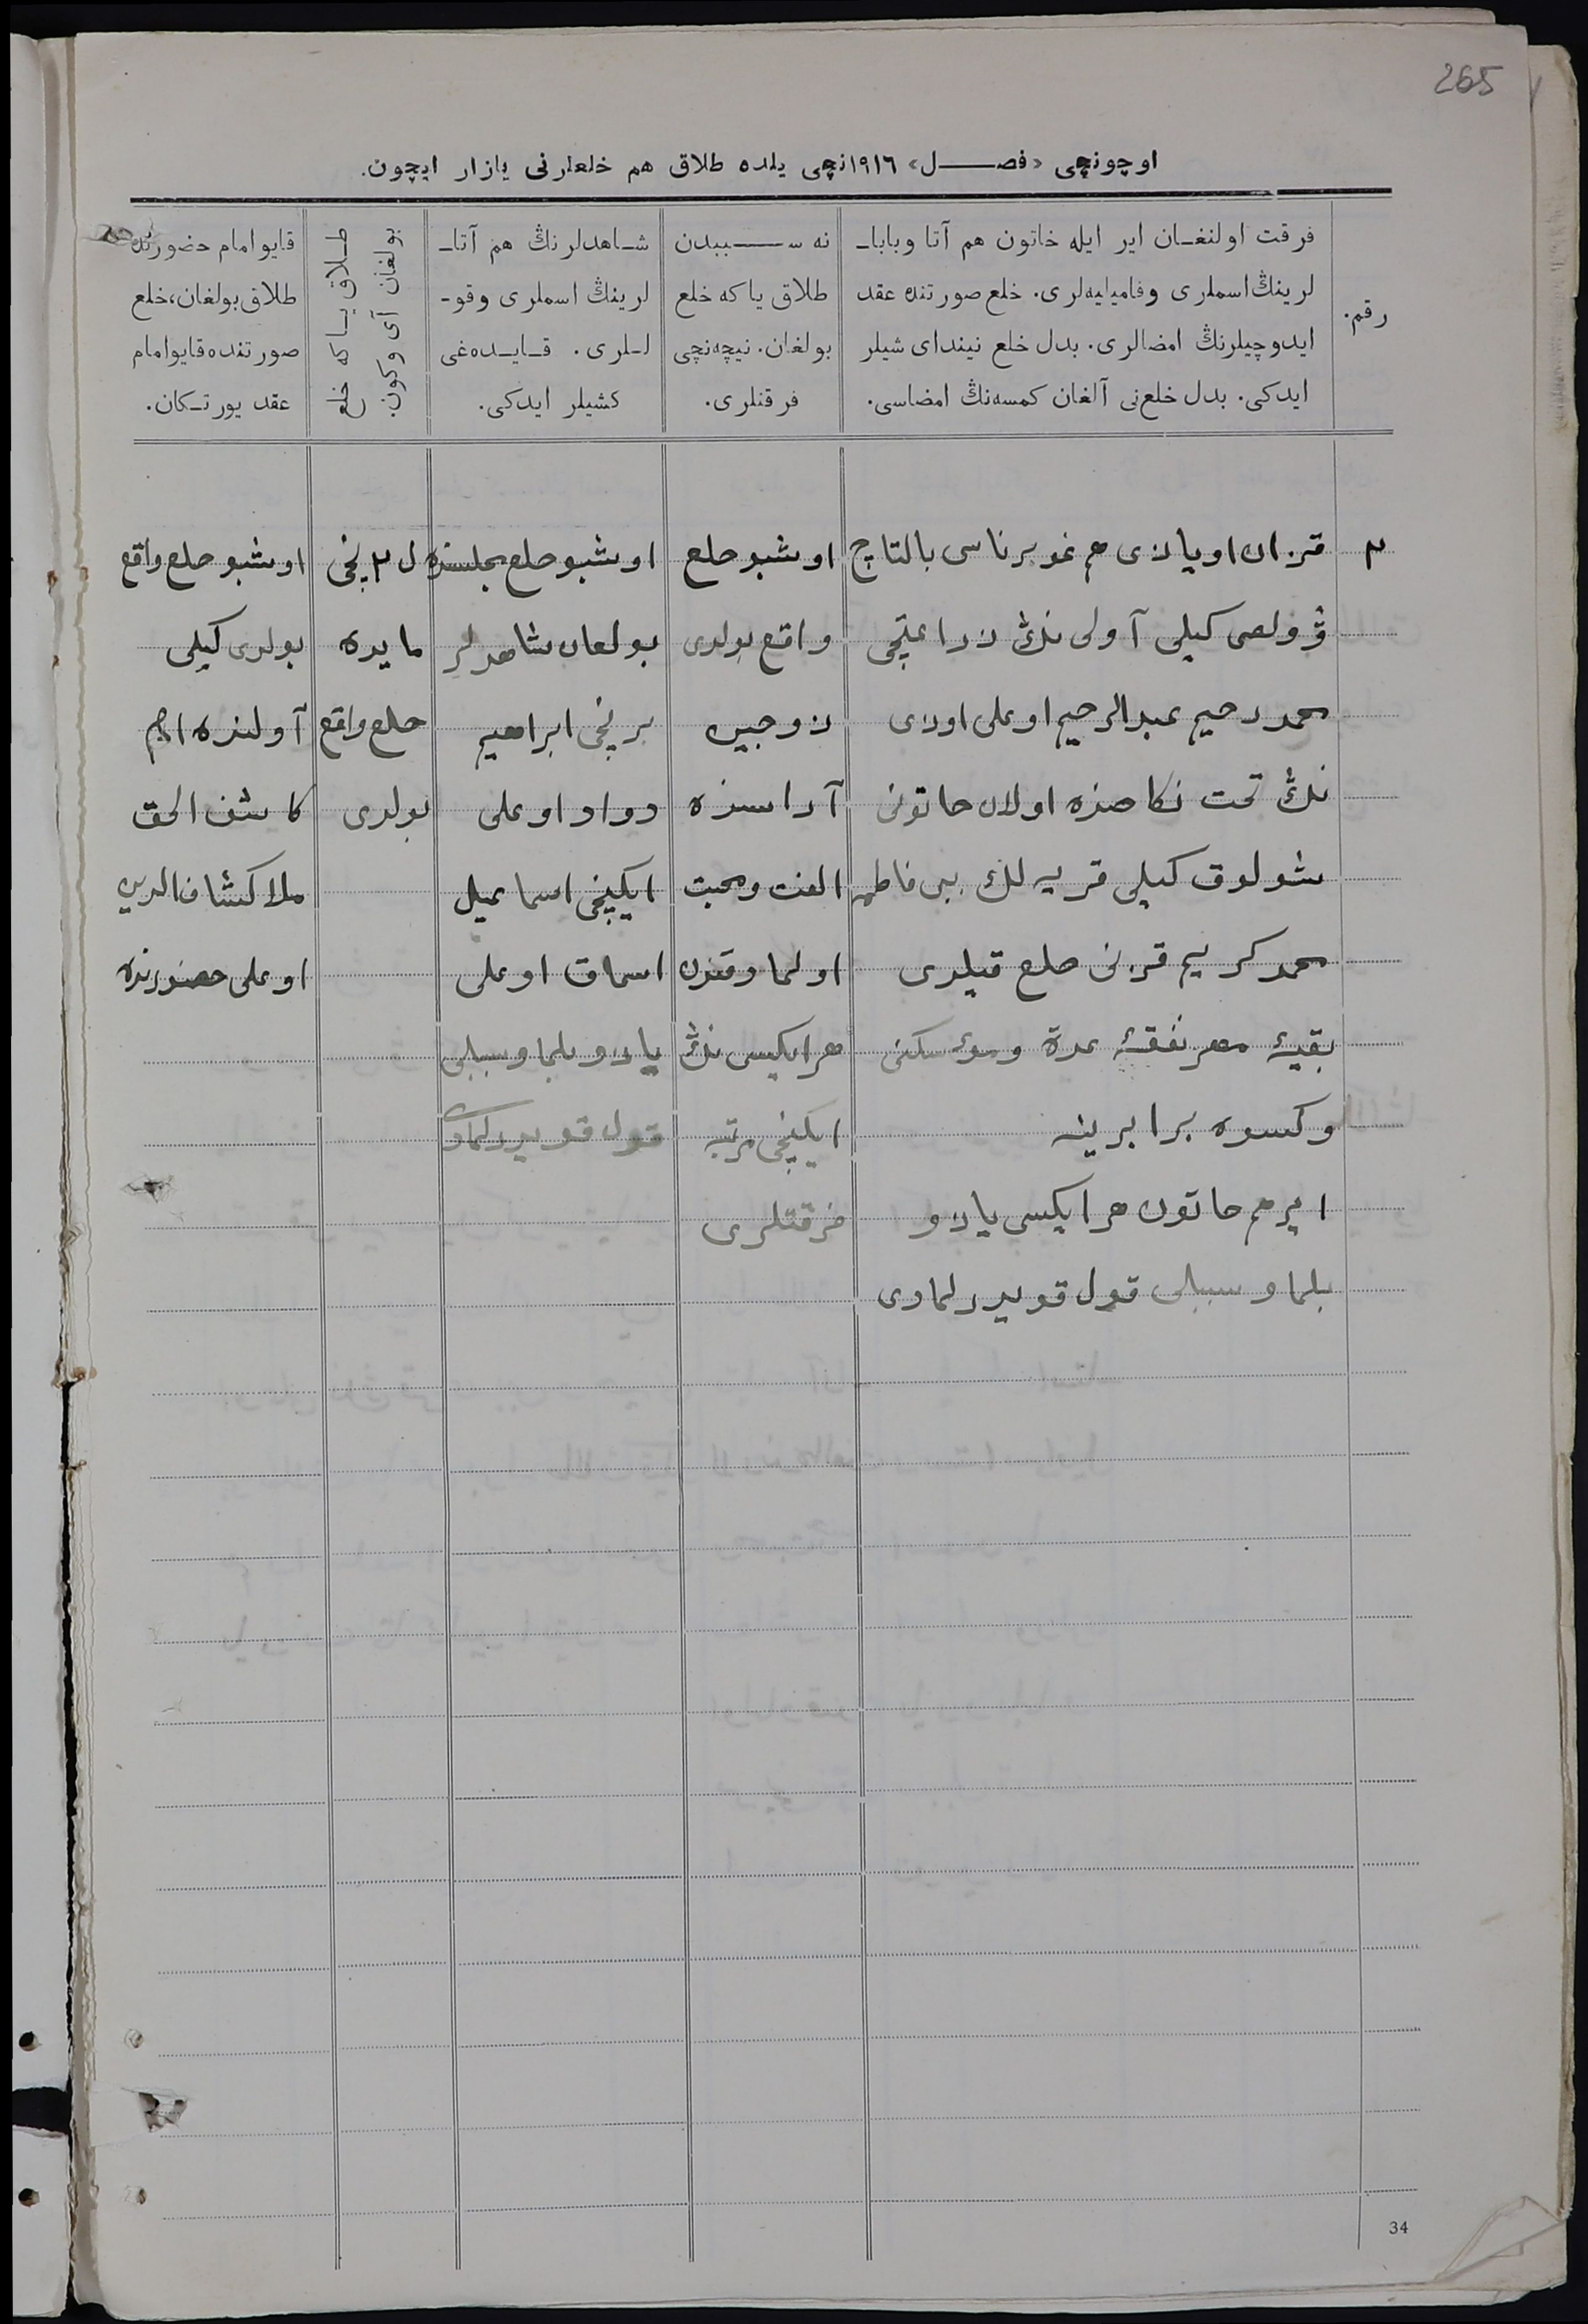 265
اوچونچی «فصـــل» ١٩١٦نچی یلده طلاق هم خلعلرنی یازار ایچون.
رقم.
فرقت اولنغـان ایر ایله خاتون هم آتا وبابا۔
لرینڭ اسملری وفامیلیه‌لری. خلع صورتنده عقد
ایدوچیلرنڭ امضالری. بدل خلع نیندای شیلر
ایدکی. بدل خلع‌نی آلغان کمسه‌نڭ امضاسی.
نه ســـببدن
طلاق یا که خلع
بولغان. نیچه‌نچی
فرقتلری.
شـاهدلرنڭ هم آتا۔
لرینڭ اسملری وقو۔
لـلری. قـایـده‌غی
کشیلر ایدکی.
طـلاق یـا که خلع
بولغان آی وکون.
قایو امام حضورنده
طلاق بولغان، خلع
صورتنده قایو امام
عقد یورتـکان.
٢
قزان اویازی هم غوبرناسی بالتاچ
ۋولصی کیلی آولی ننڭ
محمدرحیم عبدالرحیم اوغلی اوزی
ننڭ تحت نکاحنده اولان خاتونی
شولوق کیلی قریه لك بی بی فاطمه
محمدکریم قزنی خلع قیلدی
بقیۀ مهر نفقۀ عدة ومؤنة سکنی
وکسوه برابرینه
ایر هم خاتون هر ایکسی یازو
بلماو سببلی قول قویدرلمادی
اوشبو خلع
واقع بولدی
زوجین
آراسنده
الفت ومحبت
اولماوقدن
هر ایکیسی ننڭ
ایکینچی مرتبه
فرقتلری
اوشبو خلع مجلسنده
بولغان شاهدلر
برنچی ابراهیم
داود اوغلی
ایکینچی اسماعیل
اسحاق اوغلی
یازو بلماو سببلی
قول قویدرلمادی
٢ نچی
مایده
خلع واقع
بولدی
اوشبو خلع واقع
بولدی کیلی
آولنده امام
کاشف الحق
ملا کشاف الدین
اوغلی حضورنده
34